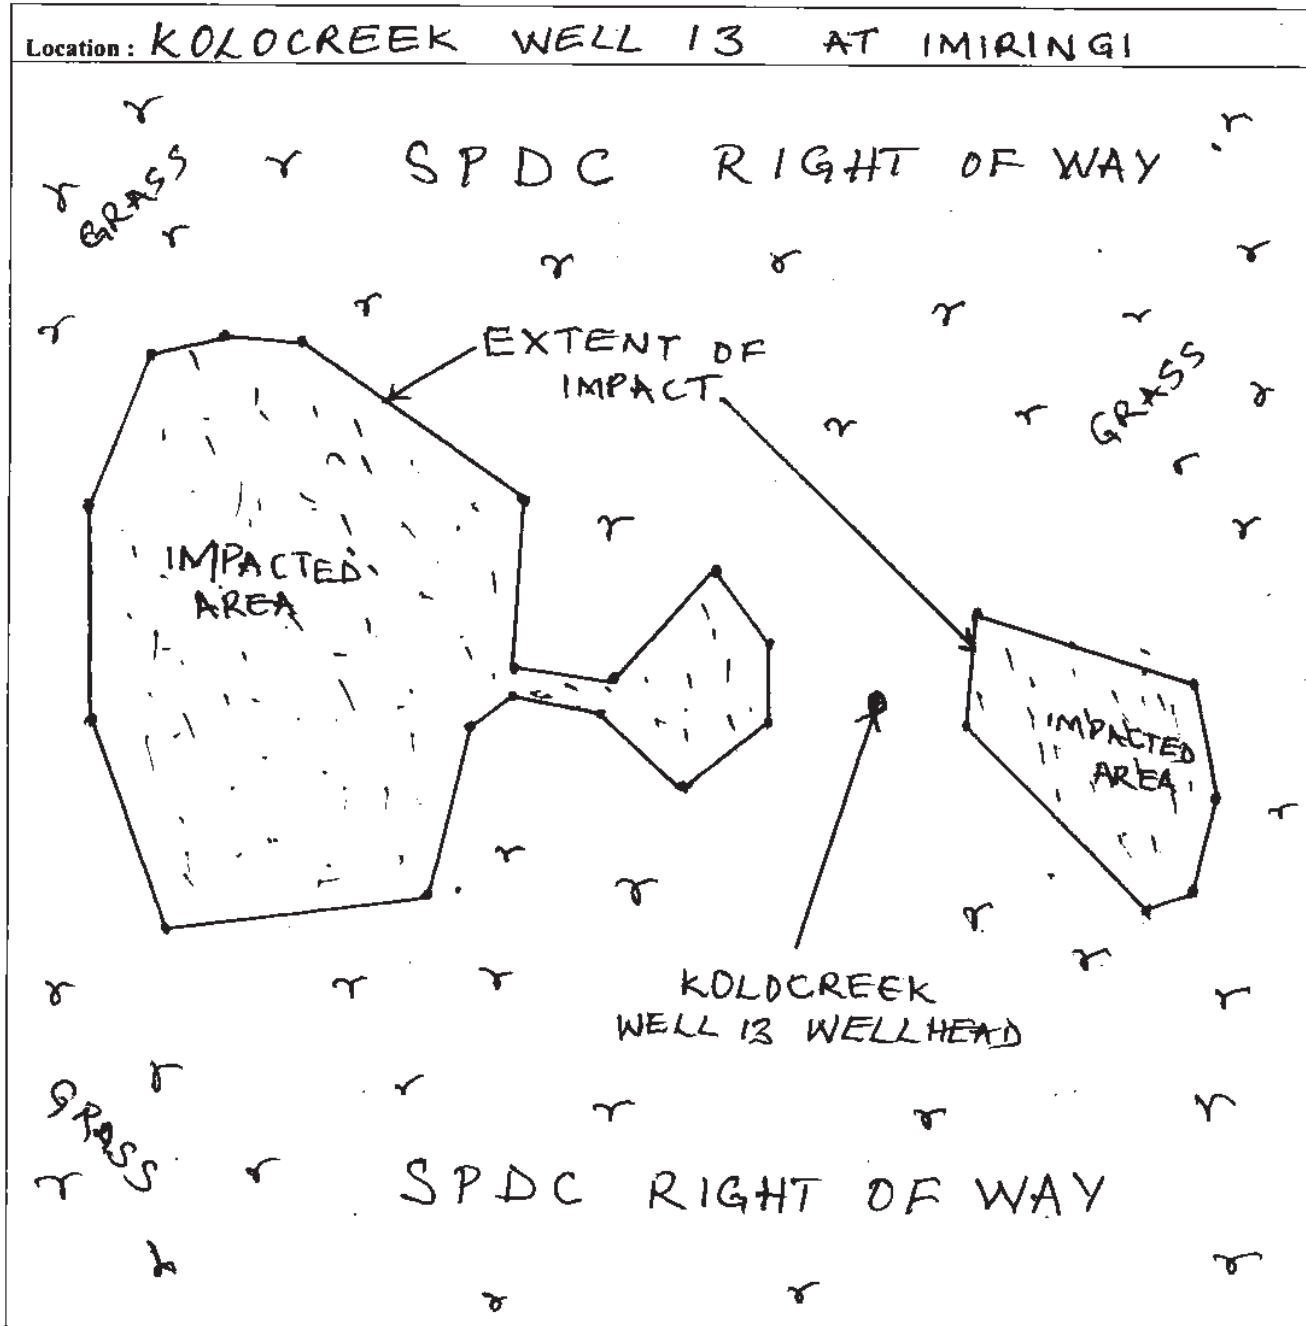 Location : KOLOCREEK WELL 13 AT IMIRINGI
SPDC RIGHT OF WAY
GRASS
EXTENT OF
IMPACT
GRASS
IMPACTED
AREA
IMPACTED
AREA
KOLOCREEK
WELL 13 WELLHEAD
GRASS
SPDC RIGHT OF WAY